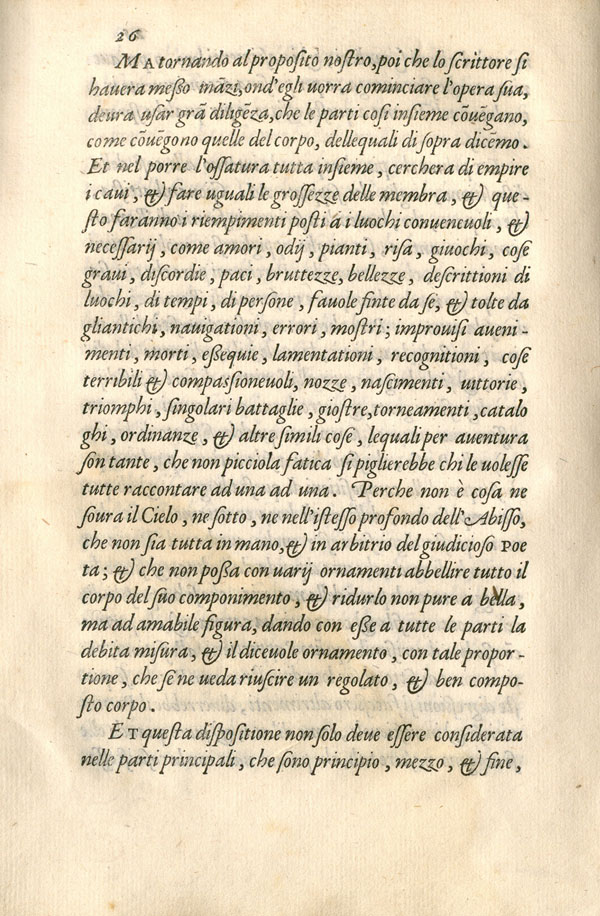 26
MA tornando al proposito nostro, poi che lo scrittore si
hauera messo mãzi, ond'egli uorra cominciare l'opera sua,
deura usar grã diligẽza, che le parti cosi insieme cõuẽgano,
come cõuẽgono quelle del corpo, dellequali di sopra dicẽmo.
Et nel porre l'ossatura tutta insieme, cerchera di empire
i caui, & fare uguali le grossezze delle membra, & que-
sto faranno i riempimenti posti á i luochi conueneuoli, &
necessarij, come amori, odij, pianti, risa, giuochi, cose
graui, discordie, paci, bruttezze, bellezze, descrittioni di
luochi, di tempi, di persone, fauole finte da se, & tolte da
gliantichi, nauigationi, errori, mostri; improuisi aueni-
menti, morti, essequie, lamentationi, recognitioni, cose
terribili & compassioneuoli, nozze, nascimenti, uittorie,
triomphi, singolari battaglie, giostre, torneamenti, catalo
ghi, ordinanze, & altre simili cose, lequali per auentura
son tante, che non picciola fatica si piglierebbe chi le uolesse
tutte raccontare ad una ad una. Perche non è cosa ne
soura il Cielo, ne sotto, ne nell'istesso profondo dell'Abisso,
che non sia tutta in mano, & in arbitrio del giudicioso Poe
ta; & che non possa con uarij ornamenti abbellire tutto il
corpo del suo componimento, & ridurlo non pure a bella,
ma ad amabile figura, dando con esse a tutte le parti la
debita misura, & il diceuole ornamento, con tale propor-
tione, che se ne ueda riuscire un regolato, & ben compo-
sto corpo.
ET questa dispositione non solo deue essere considerata
nelle parti principali, che sono principio, mezzo, & fine,